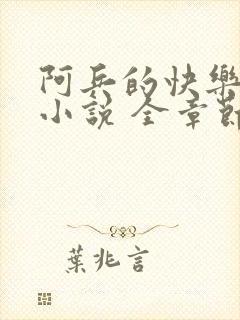 阿兵的快樂
小說 全章
葉兆言